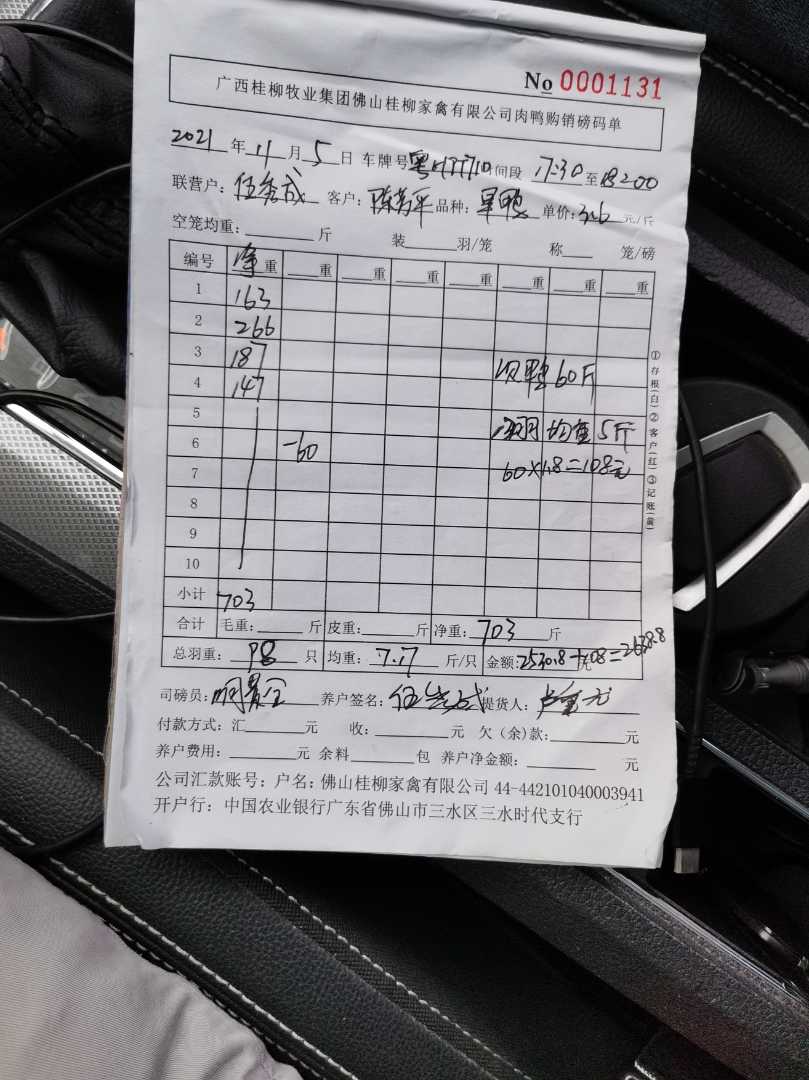 No 0001131
广西桂柳牧业集团佛山桂柳家禽有限公司肉鸭购销磅码单
2021 年 11 月 5 日 车牌号 粤 时间段 17:30 至
联营户: 伍秀成 客户: 陈 平 品种: 单价: 3.6 元/斤
空笼均重: 斤 装 羽/笼 称 笼/磅
编号 净重 重 重 重 重 重 重 重
1 163
2 266
3 187
4 147 60斤
5
6 -60 均重 5斤
7 60×1.8=108元
8
9
10
小计 703
合计 毛重: 斤 皮重: 斤 净重: 703 斤
总羽重: 98 只 均重: 7.17 斤/只 金额: 2530.8+108=2638.8 元
司磅员: 养户签名: 提货人:
付款方式: 汇 元 收: 元 欠(余)款: 元
养户费用: 元 余料 包 养户净金额: 元
公司汇款账号: 户名: 佛山桂柳家禽有限公司 44-442101040003941
开户行: 中国农业银行广东省佛山市三水区三水时代支行
①存根(白)②客户(红)③记账(黄)